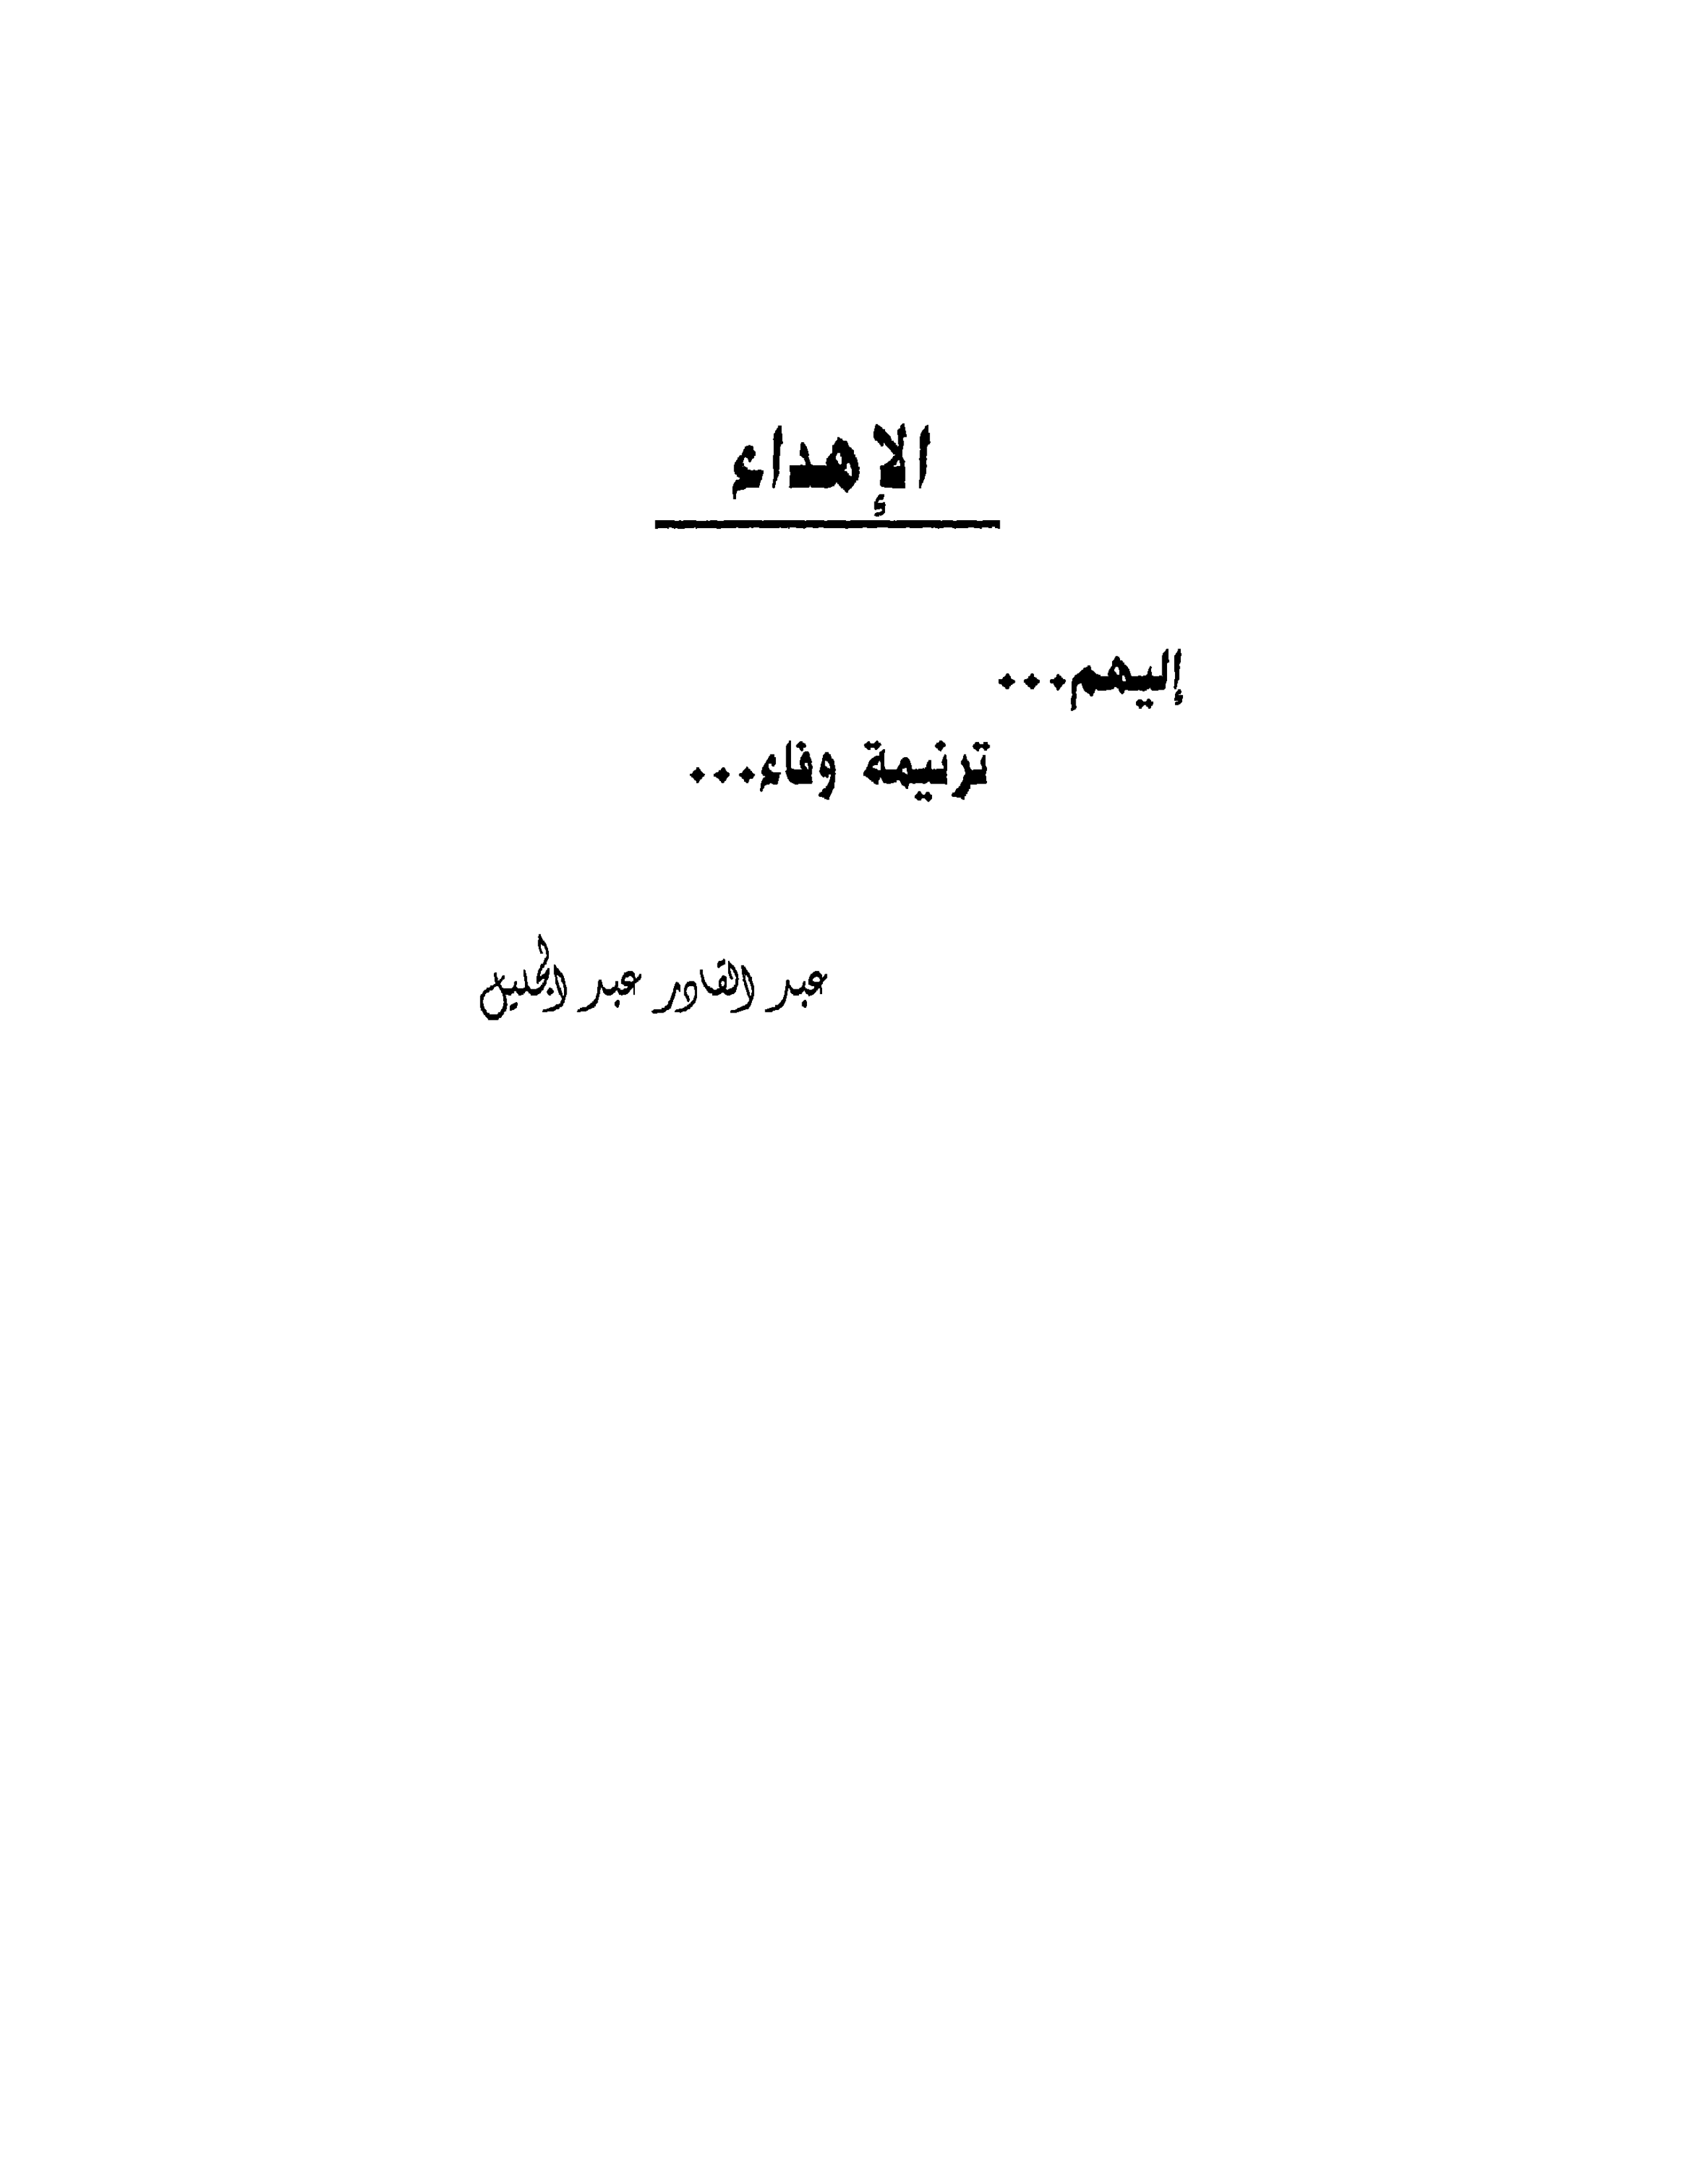 الإهداء
إليهم...
ترنيمة وفاء...
عبد القادر عبد الجليل